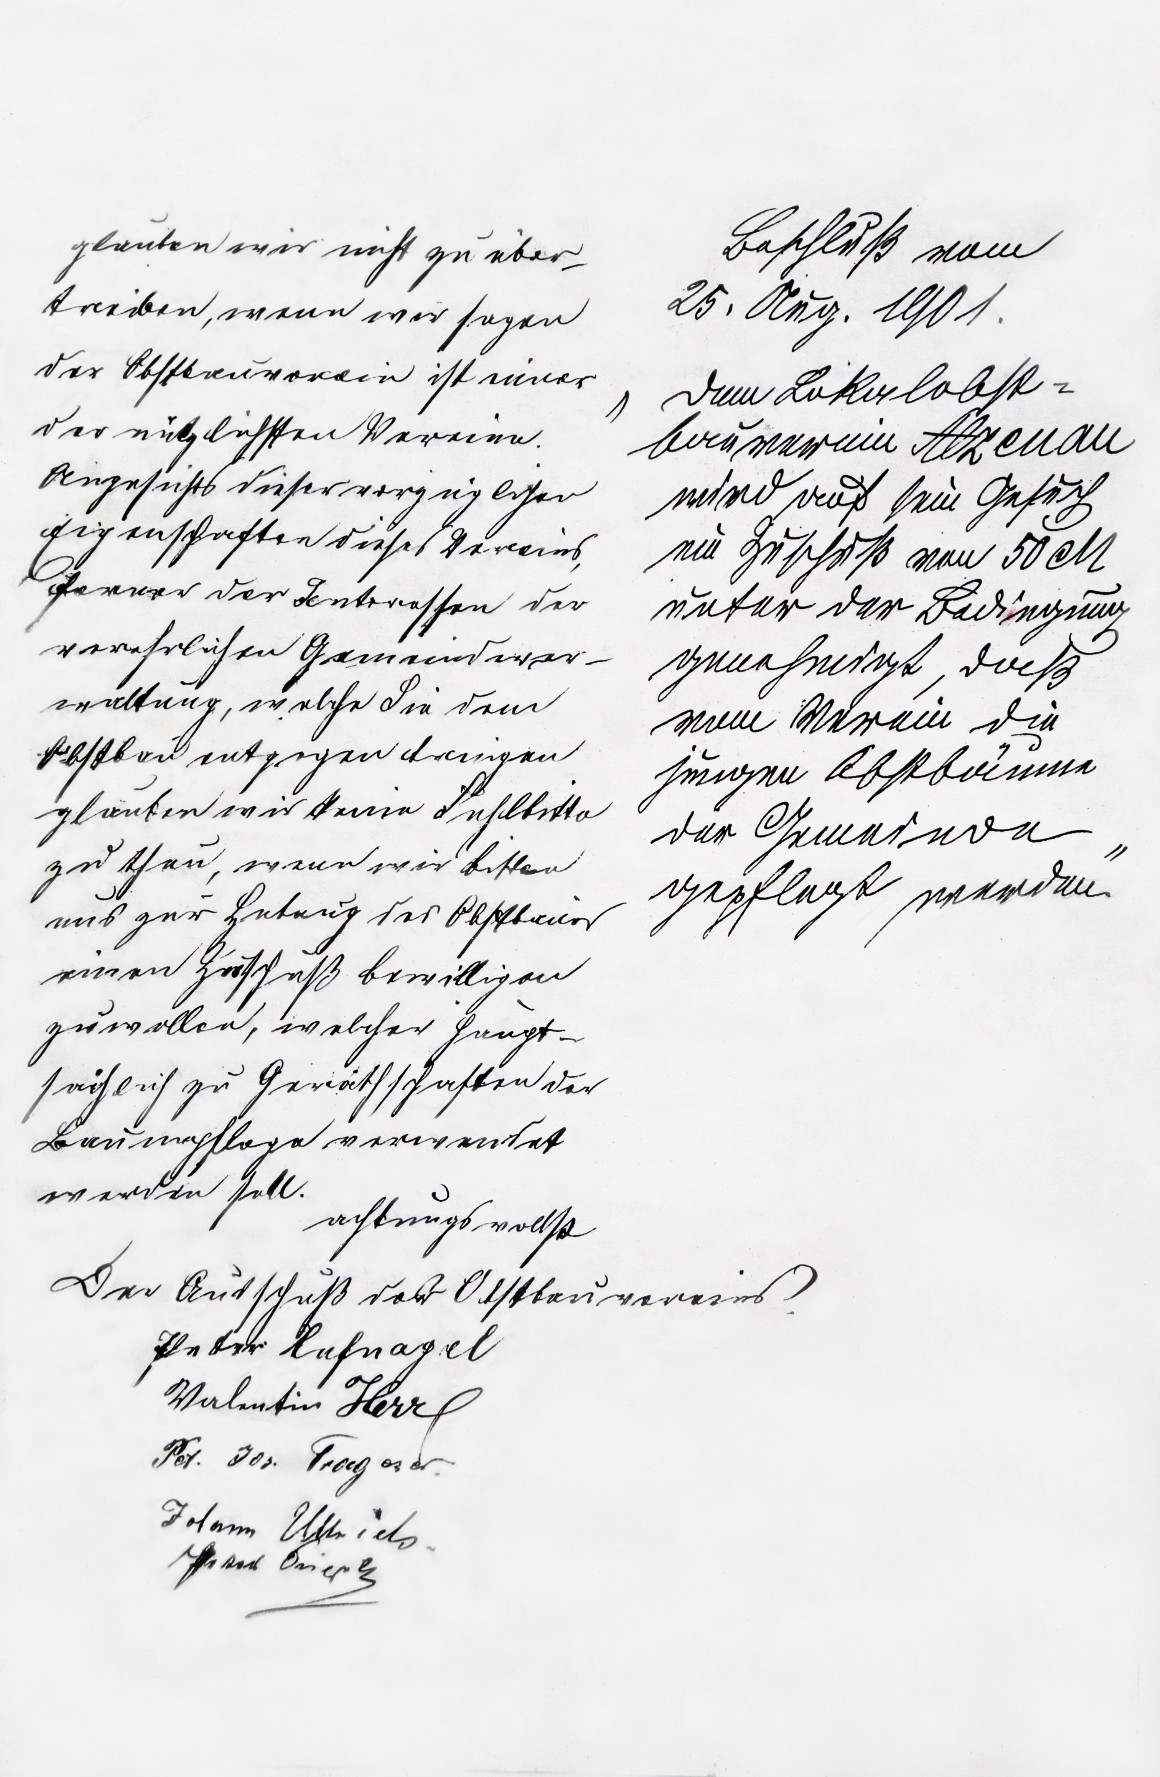 glauben wir nicht zu über-
treiben, wenn wir sagen
der Obstbauverein ist einer
der nützlichsten Vereine.
Angesichts dieser vorzüglichen
Eigenschaften dieses Vereins,
ferner der Interessen der
verehrlichen Gemeindever-
waltung, welche Sie dem
Obstbau entgegen bringen
glauben wir keine Fehlbitte
zu thun, wenn wir bitten
uns zur Hebung des Obstbaues
einen Zuschuß bewilligen
zuwollen, welcher haupt-
sächlich zu Geräthschaften der
Baumpflege verwendet
werden soll.
achtungsvollst
Der Ausschuß des Obstbauvereins
Peter Hufnagel
Valentin Herr
Pet. Jos. Trageser
Johann Ullrich
Peter
Beschluß vom
25. Aug. 1901.
"Dem Lokalobst=
bauverein Alzenau
wird auf sein Gesuch
ein Zuschuß von 50 M
unter der Bedingung
genehmigt, daß
vom Verein die
jungen Obstbäume
der Gemeinde
gepflegt werden."